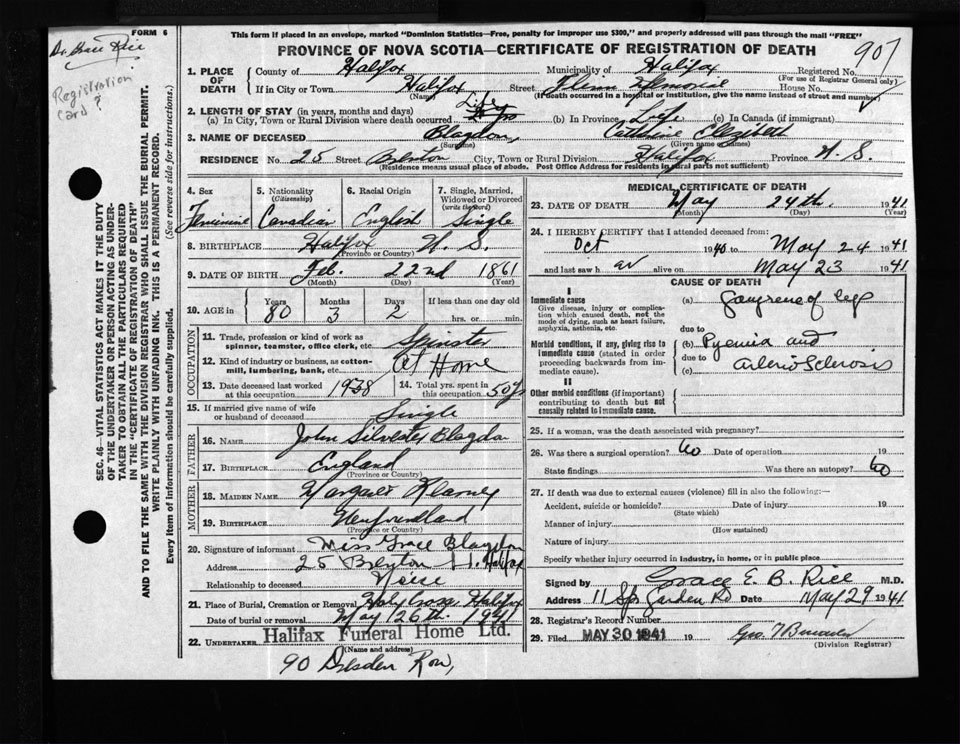 FORM 6
This form if placed in an envelope, marked "Dominion Statistics—Free, penalty for improper use $300," and properly addressed will pass through the mail "FREE"
PROVINCE OF NOVA SCOTIA—CERTIFICATE OF REGISTRATION OF DEATH
907
Rice
Registration
card ?
1. PLACE OF DEATH
County of Halifax Municipality of Halifax Registered No.
(For use of Registrar General only)
If in City or Town Halifax Street House No.
(Name) (If death occurred in a hospital or institution, give the name instead of street and number)
2. LENGTH OF STAY (in years, months and days)
(a) In City, Town or Rural Division where death occurred Life (b) In Province Life (c) In Canada (if immigrant)
3. NAME OF DECEASED Blagdon, Cathrine Elezibeth
(Surname) (Given name or names)
RESIDENCE No. 25 Street Brenton City, Town or Rural Division Halifax Province N. S.
(Residence means usual place of abode. Post Office Address for residents in rural parts not sufficient)
SEC. 46—VITAL STATISTICS ACT MAKES IT THE DUTY
OF THE UNDERTAKER OR PERSON ACTING AS UNDER-
TAKER TO OBTAIN ALL THE PARTICULARS REQUIRED
IN THE "CERTIFICATE OF REGISTRATION OF DEATH"
AND TO FILE THE SAME WITH THE DIVISION REGISTRAR WHO SHALL ISSUE THE BURIAL PERMIT.
WRITE PLAINLY WITH UNFADING INK. THIS IS A PERMANENT RECORD.
Every item of Information should be carefully supplied. (See reverse side for instructions.)
4. Sex
Feminine
5. Nationality
(Citizenship)
Canadian
6. Racial Origin
English
7. Single, Married,
Widowed or Divorced
(write the word)
Single
8. BIRTHPLACE Halifax N. S.
(Province or Country)
9. DATE OF BIRTH Feb. 22nd 1861
(Month) (Day) (Year)
10. AGE in Years 80 Months 3 Days 2 If less than one day old
hrs. or min.
OCCUPATION
11. Trade, profession or kind of work as
spinner, teamster, office clerk, etc. Spinister
12. Kind of industry or business, as cotton-
mill, lumbering, bank, etc. At Home
13. Date deceased last worked
at this occupation 1938
14. Total yrs. spent in
this occupation 50 yrs
15. If married give name of wife
or husband of deceased Single
FATHER
16. NAME John Silvester Blagdon
17. BIRTHPLACE England
(Province or Country)
MOTHER
18. MAIDEN NAME Margaret Kearney
19. BIRTHPLACE Newfoundland
(Province or Country)
20. Signature of informant Miss Grace Blagdon
Address 25 Brenton St. Halifax
Relationship to deceased Neice
21. Place of Burial, Cremation or Removal Halifax
Date of burial or removal May 26th 1941
22. UNDERTAKER Halifax Funeral Home Ltd.
(Name and address)
90 Dresden Row,
MEDICAL CERTIFICATE OF DEATH
23. DATE OF DEATH May 24th. 1941
(Month) (Day) (Year)
24. I HEREBY CERTIFY that I attended deceased from:
Oct 1940 to May 24 1941
and last saw h er alive on May 23 1941
CAUSE OF DEATH
I
Immediate cause
Give disease, injury or complica-
tion which caused death, not the
mode of dying, such as heart failure,
asphyxia, asthenia, etc.
(a) Gangrene of legs
due to
Morbid conditions, if any, giving rise to
immediate cause (stated in order
proceeding backwards from im-
mediate cause).
(b) Pyemia and
due to
(c) arterio Sclerosis
II
Other morbid conditions (if important)
contributing to death but not
causally related to immediate cause.
25. If a woman, was the death associated with pregnancy?
26. Was there a surgical operation? No Date of operation 19
State findings Was there an autopsy? No
27. If death was due to external causes (violence) fill in also the following:—
Accident, suicide or homicide? Date of injury 19
(State which)
Manner of injury
(How sustained)
Nature of injury
Specify whether injury occurred in industry, in home, or in public place
Signed by Grace E. B. Rice M.D.
Address 11 Spr Garden Rd Date May 29 1941
28. Registrar's Record Number
29. Filed MAY 30 1941 19 Geo.
(Division Registrar)